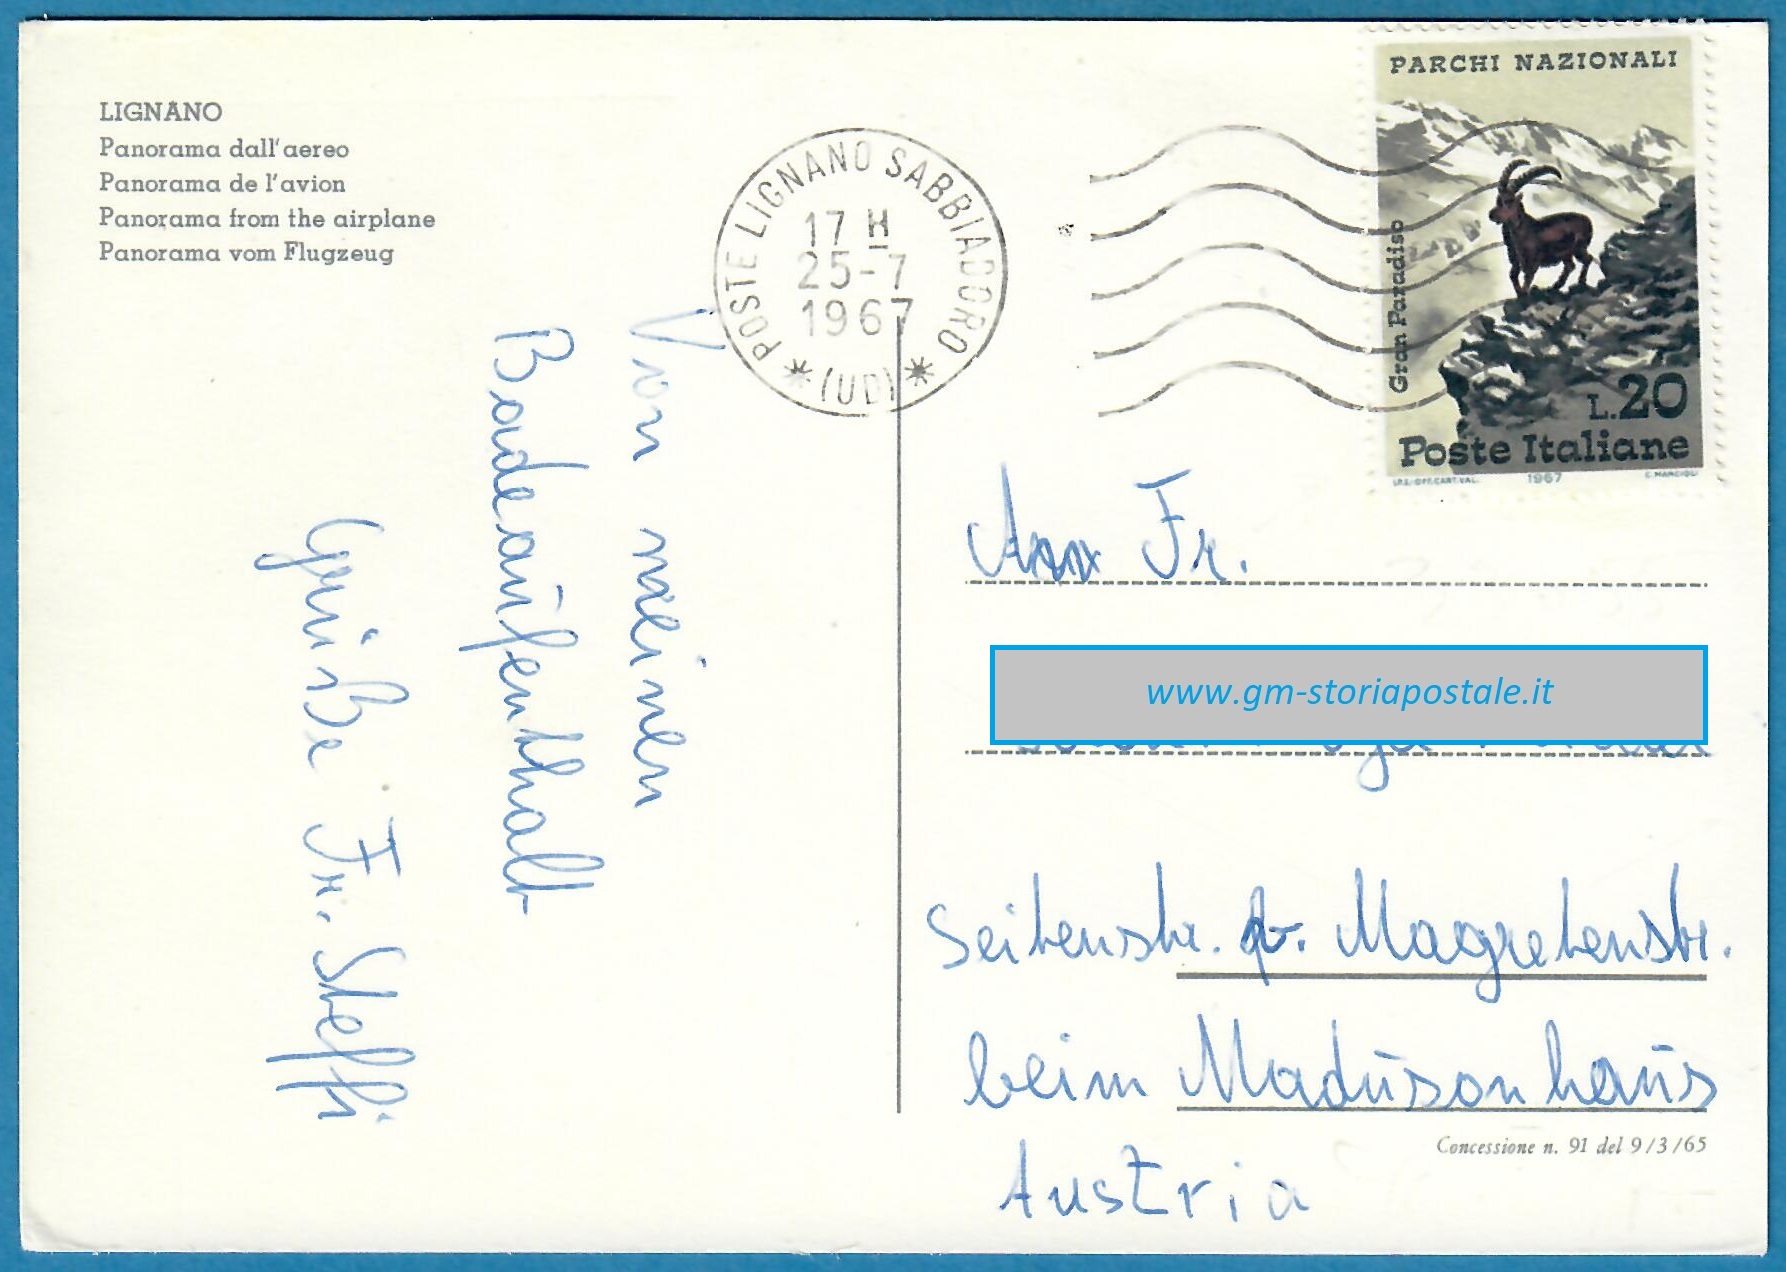 LIGNANO
Panorama dall'aereo
Panorama de l'avion
Panorama from the airplane
Panorama vom Flugzeug
POSTE LIGNANO SABBIADORO
17 H
25-7
1967
* (UD) *
PARCHI NAZIONALI
Gran Paradiso
L.20
Poste Italiane
I.P.S.-OFF.CART.VAL. 1967 C. MANCIOLI
Von meinen
Badeaufenthalt
Grüße Fr. Steffi
Ann Fr.
www.gm-storiapostale.it
Seitenstr. Magretenstr.
beim Madüsonhaüs
Austria
Concessione n. 91 del 9/3/65